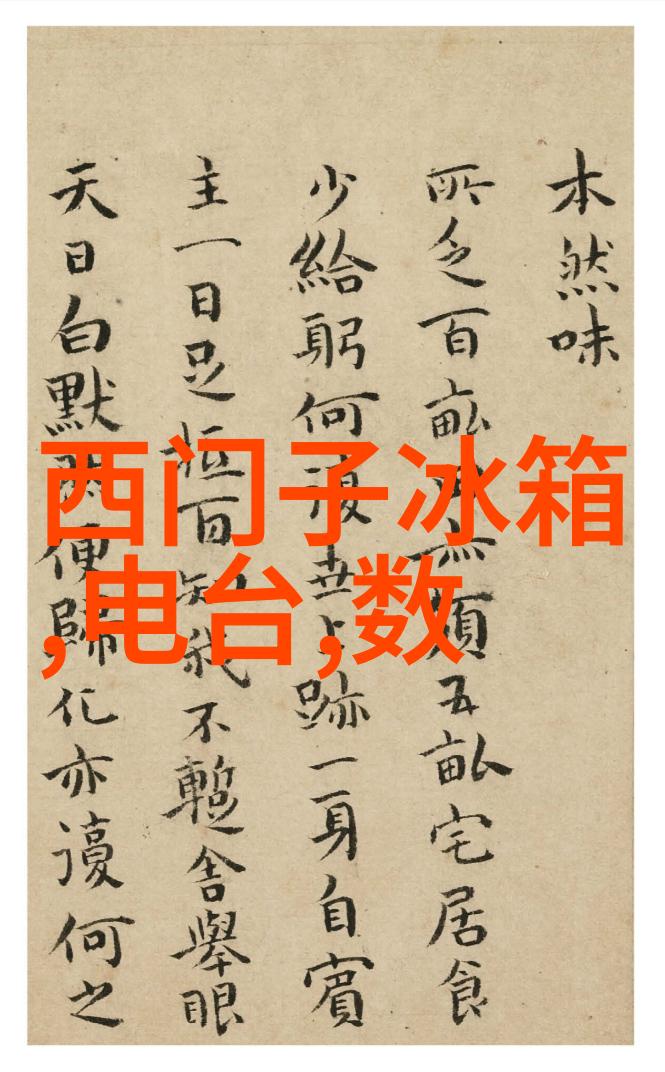 本然味
所乏百畝無五畝宅居食
少給躬何復世上跡一身自賓
主一日足百知我不暫舍舉眼
天日白默便歸化亦復何之
西门子冰箱
,电台,数